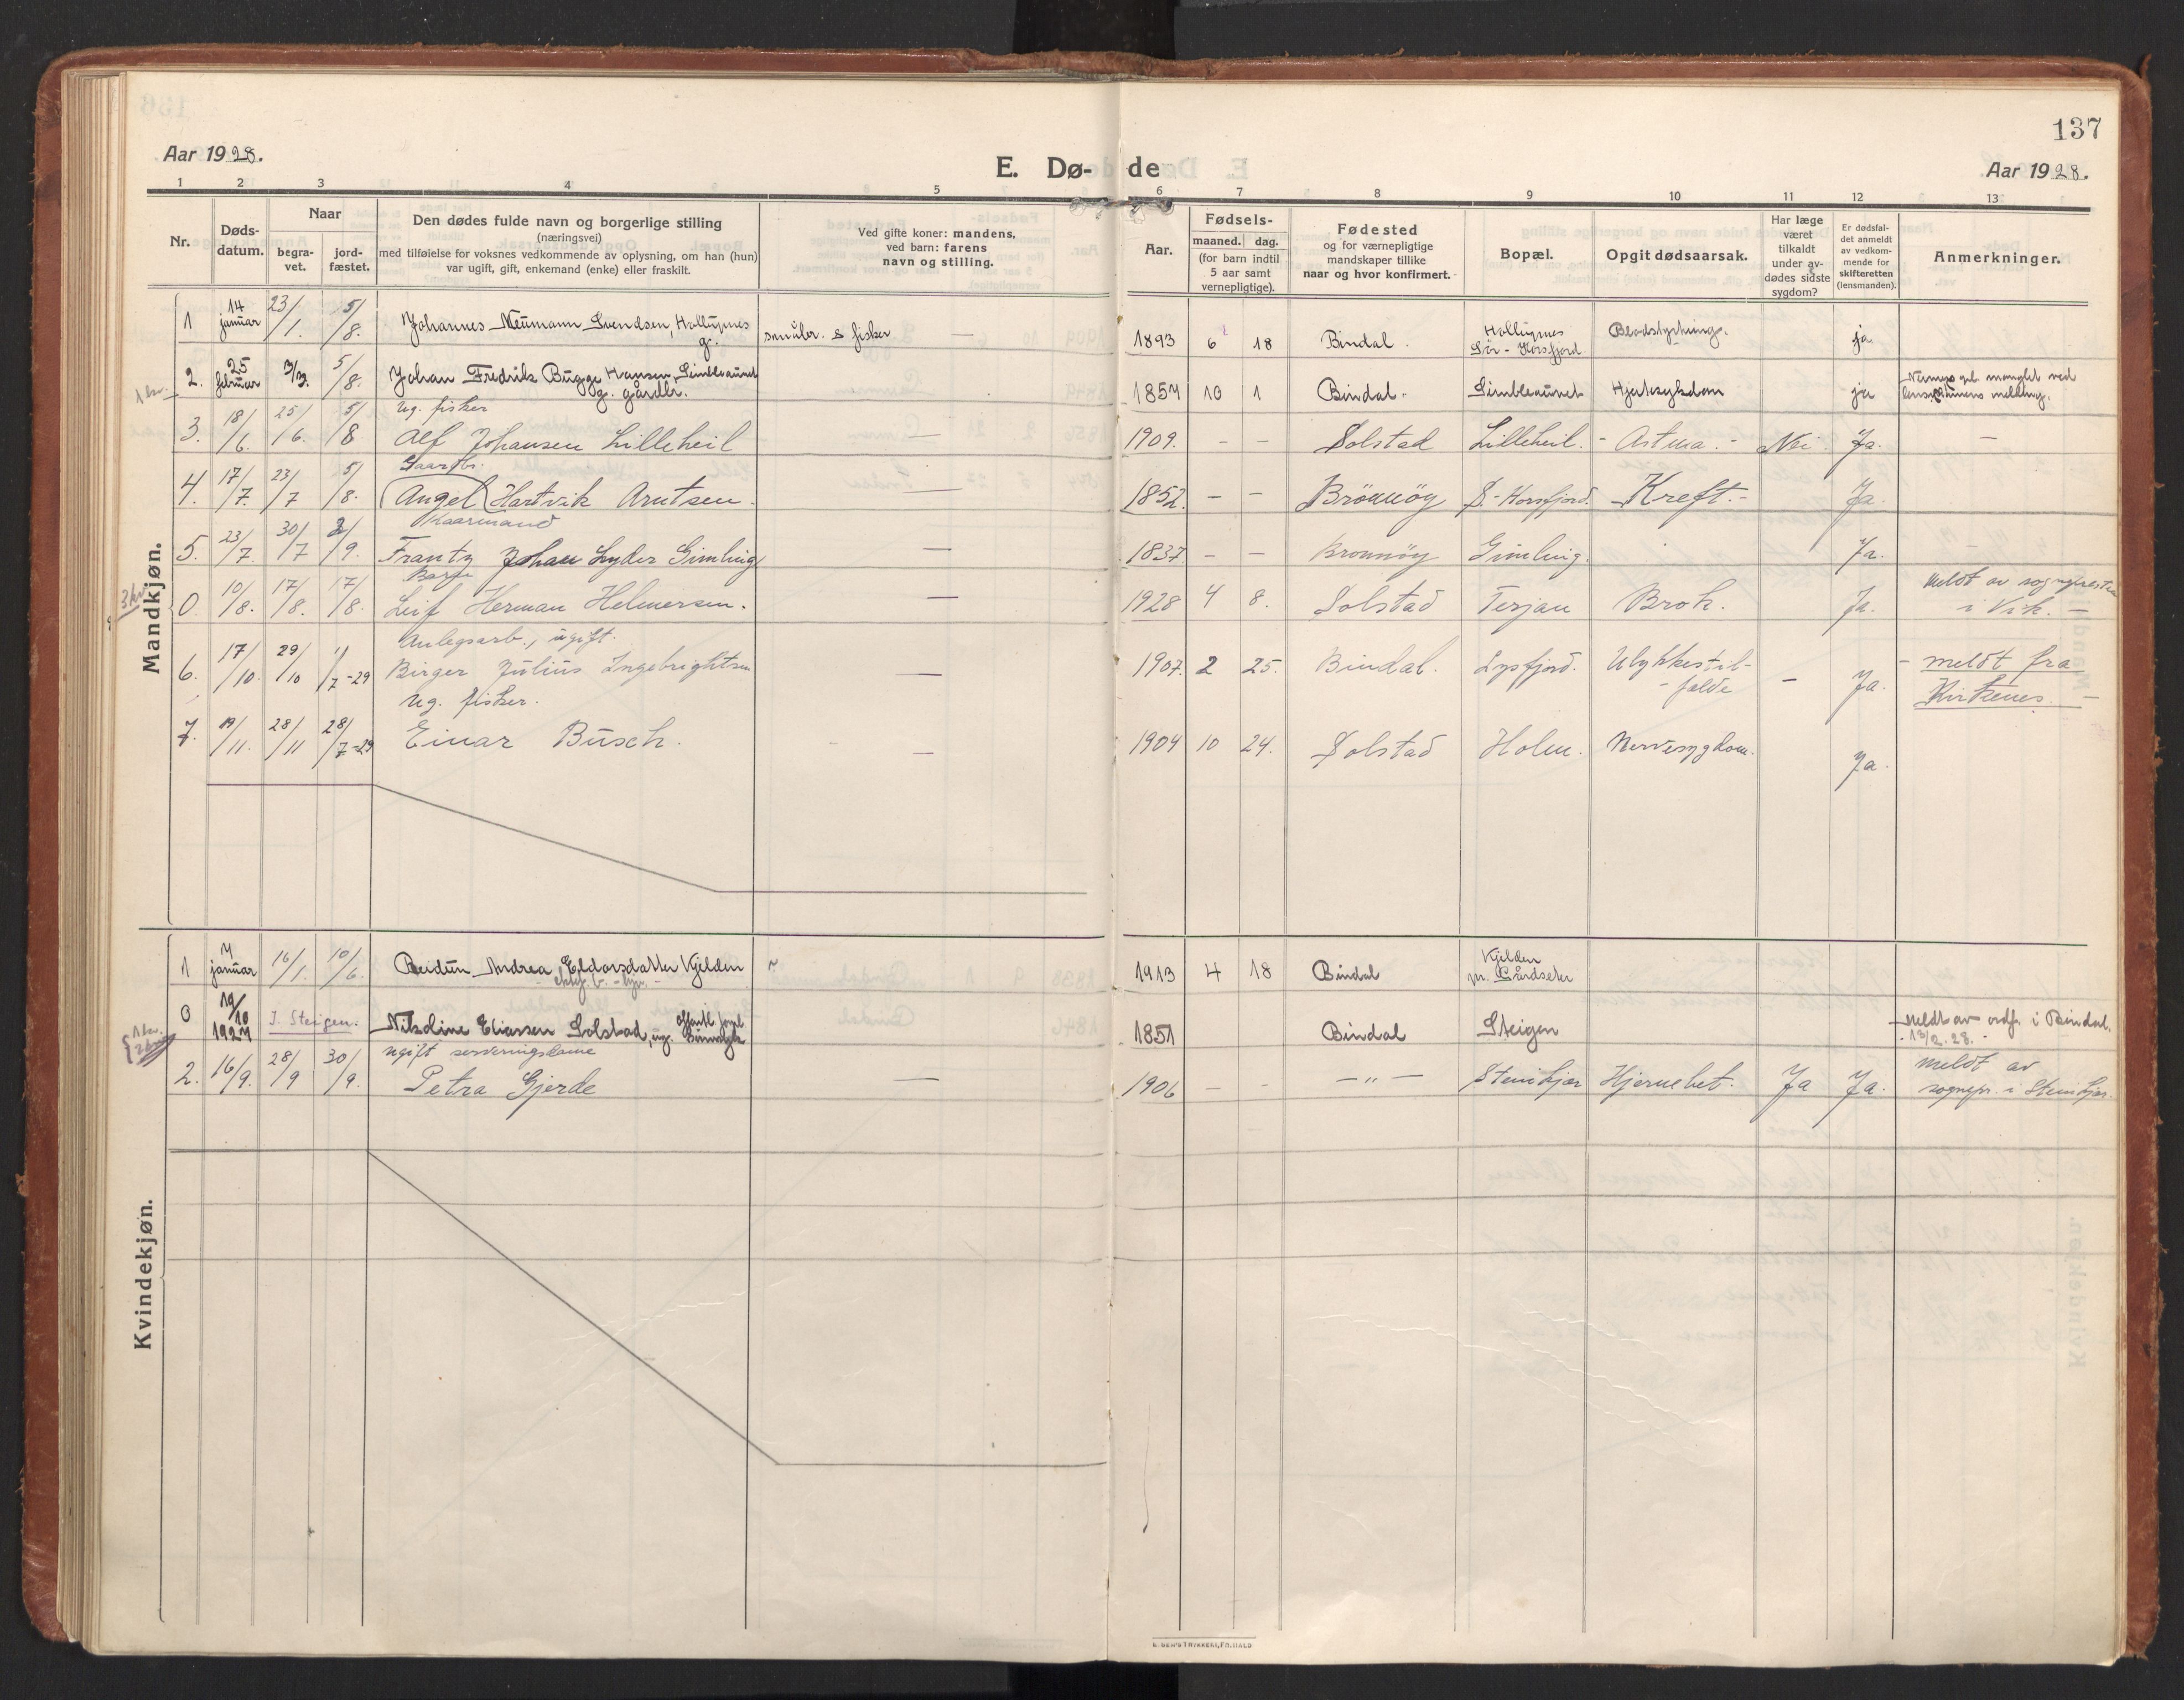 137
Aar 1928.
E. Dø- de
Aar 1928.
1 2 3 4 5 6 7 8 9 10 11 12 13
Nr.
Døds-
datum.
Naar
begra-
vet.
jord-
fæstet.
Den dødes fulde navn og borgerlige stilling
(næringsvei)
med tilføielse for voksnes vedkommende av oplysning, om han (hun)
var ugift, gift, enkemand (enke) eller fraskilt.
Ved gifte koner: mandens,
ved barn: farens
navn og stilling.
Aar.
Fødsels-
maaned. dag.
(for barn indtil
5 aar samt
vernepligtige).
Fødested
og for værnepligtige
mandskaper tillike
naar og hvor konfirmert.
Bopæl.
Opgit dødsaarsak.
Har læge
været
tilkaldt
under av-
dødes sidste
sygdom?
Er dødsfal-
det anmeldt
av vedkom-
mende for
skifteretten
(lensmanden).
Anmerkninger.
Mandkjøn.
1 14 januar 23/1. 5/8. Johannes Neumann Svendsen, g. smålbr. & fisker — 1893 6 18 Bindal. Sør-Horsfjord ja
2. 25 februar 3/3. 5/8. Johan Fredrik Bugge Hansen, g. gårdbr. 1857 10 1 Bindal. ja
ug. fisker
3. 18/6. 25/6. 5/8 Alf Johansen Lilleheil — 1909. - - Solstad Lilleheil. - Astma. - Nei. Ja. —
Gaardbr.
4. 17/7. 23/7 5/8. (Angel) Hartvik Arntsen. — 1852. - - Brönnöy S.-Horsfjord. Kreft. - Ja.
Kaarmand
5. 23/7. 30/7 2/9. Frantz Johan Lyder Gimling — 1837. - - Bronnöy Gimling. Ja. —
Barn
0. 10/8. 17/8. 17/8. Leif Herman Helmersen. — 1928 4 8. Solstad Terjan Brok. Ja. Meldt av sogneprest
i Vik. —
Anlegsarb., ugift.
6. 17/10. 29/10 1/7-29 Birger Julius Ingebrightsen — 1907. 2 25. Bindal. Lysfjord. Ulykkestil-
fælde - Ja. - meldt fra
Kirkenes. —
ug. fisker.
7. 19/11. 28/11 28/7-29 Einar Busch. — 1904 10 24. Solstad Holm. Nervesygdom. Ja.
Kvindekjøn.
1 7 januar 16/1. 10/6. Reidun Andrea Eldorsdatter Kjelden 1913 4 18 Bindal Kjelden
Gårdseter
0 19/10 1927 I. Steigen. Nikoline Eliassen Solstad, ug. 1851 Bindal Steigen Meldt av ordf. i Bindal.
13/2.28.
ugift serveringsdame
2. 16/9. 28/9 30/9. Petra Gjerde — 1906 - - —"— Steinkjær Hjernebet. Ja Ja. meldt av
sognepr. i Steinkjær.